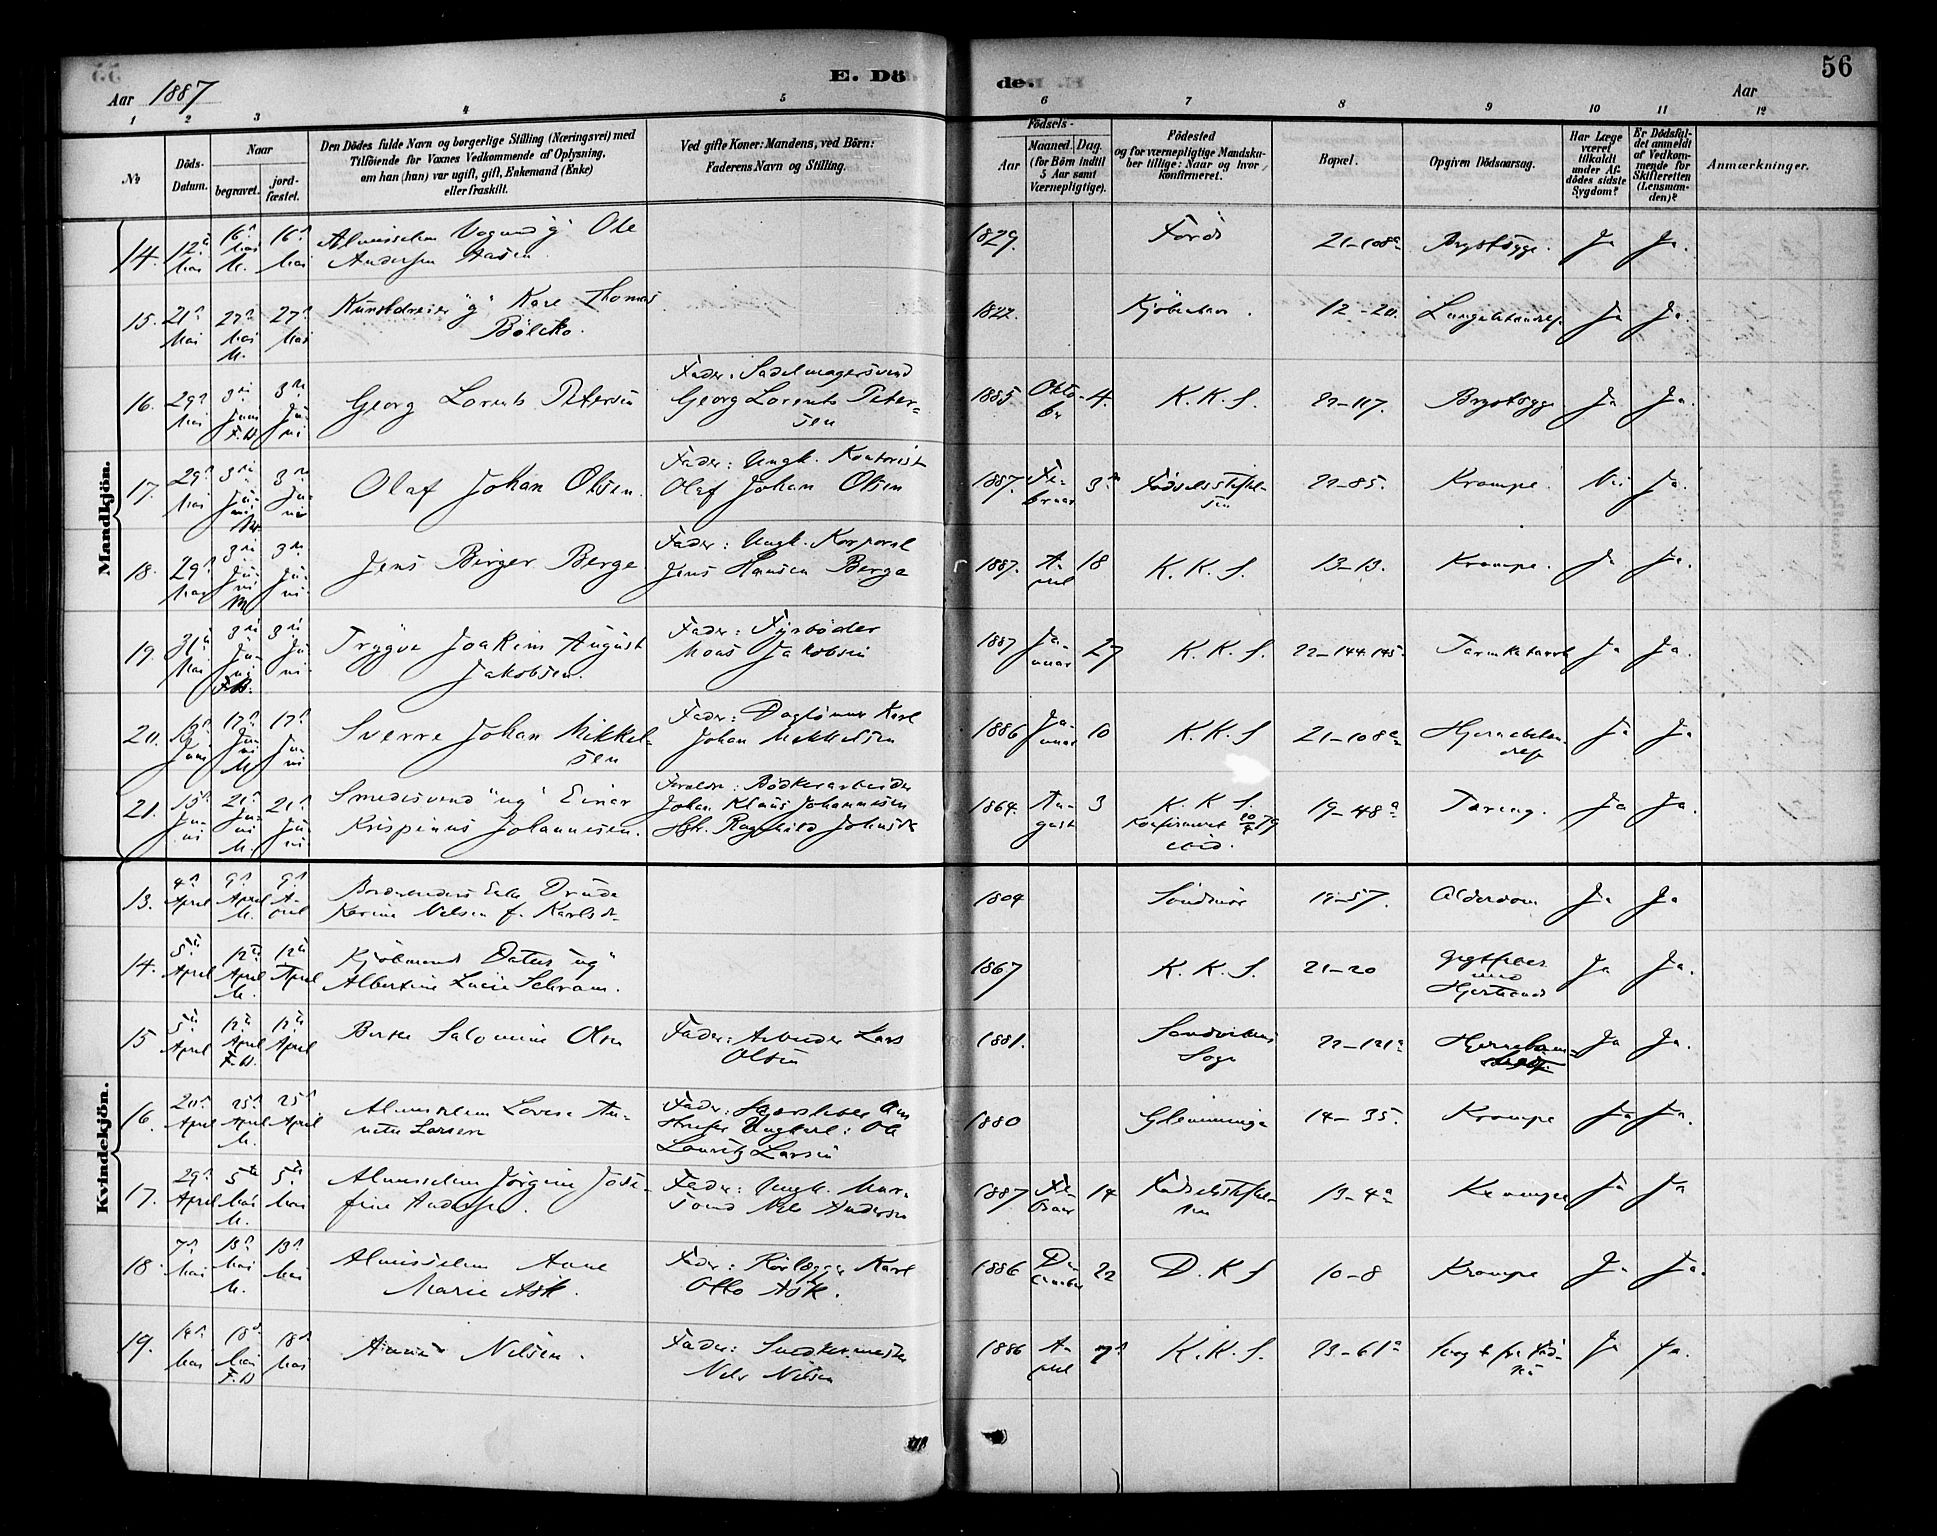 55
Aar 1887
E. Dö
de.
56
Aar
1 2 3 4 5 6 7 8 9 10 11 12
No
Döds-Datum.
Naar
begravet.
jord-fæstet.
Den Dödes fulde Navn og borgerlige Stilling (Næringsvei) med
Tilföiende for Voxnes Vedkommende af Oplysning,
om han (hun) var ugift, gift, Enkemand (Enke)
eller fraskilt.
Ved gifte Koner: Mandens, ved Börn:
Faderens Navn og Stilling.
Födsels-
Aar
Maaned. Dag.
(for Börn indtil
5 Aar samt
Værnepligtige).
Födested
og for værnepligtige Mandska-
ber tillige: Naar og hvor
konfirmeret.
Bopæl.
Opgiven Dödsaarsag.
Har Læge
været
tilkaldt
under Af-
dödes sidste
Sygdom?
Er Dödsfal-
det anmeldt
af Vedkom-
mende for
Skifteretten
(Lensman-
den)?
Anmærkninger.
Mandkjön.
14. 12te Mai 16de Mai M. 16de Mai Ole
Andersen Aasen 1829. 21-108a Brystsyge. Ja Ja.
15. 21de Mai 27de Mai M. 27de Mai "g" Kare Thomas
Kjöbenhavn. 12-20 Ja Ja.
16. 29de Mai 3die Juni F.B. 3die Juni Georg Lorents Petersen
Fader: Sadelmagersvend
Georg Lorents Peter-
sen
1885 Okto-
br 4. K.K.S. 22-117. Brystsyge Ja Ja.
17. 29de Mai 3die Juni M. 3die Juni Olaf Johan Olsen.
Fader: Ungk. Kontorist
Olaf Johan Olsen
1887. Fe-
bruar 3die Födselsstiftel-
sen 22-85. Krampe. Nei Ja.
18. 29de Mai 3die Juni M 3die Juni Jens Birger Berge
Fader: Ungk. Korporal
Jens Hansen Berge
1887. A-
pril 18 K.K.S. 13-13. Krampe. Ja Ja.
19. 31te Mai 3die Juni F.B. 3die Juni Trygve Joakim August
Jakobsen.
Fader: Fyrböder
Moas Jakobsen
1887 Ja-
nuar 27 K.K.S. 22-144.145. Tarmkatarrh Ja Ja.
20. Juni 17de Juni M 17de Juni Sverre Johan Mikkel-
sen
Fader: Daglönner Karl
Johan Mikkelsen
1886 Ja-
nuar 10 K.K.S 21-108a Ja Ja
21. 15de Juni 21de Juni M. 21de Juni Smedesvend "ug" Einar
Krispinus Johannesen.
Forældre: Bödkerarbeider
Johan Klaus Johannesen
Hstr. Ragnhild Johnsdr
1864. Au-
gust 3 K.K.S.
Konfirmeret 79
ibid. 19-48a Tæring. Ja Ja.
Kvindekjön.
13. 4de April 9de April M. 9de April Enke Drude
Karine Nielsen f. Karlsdr
1804 Söndmör 19-57. Alderdom Ja Ja
14. 5te April 12te April M. 12te April Kjöbmands Datter "ug"
Albertine Lucie Schram.
1867 K.K.S. 21-20 Gigtfeber
med
Ja Ja.
15 5te April 12te April F.B. 12te April Berthe Salomine Olsen
Fader: Arbeider Lars
Olsen
1881. Sandvikens
Sogn 22-121a Ja Ja.
16. 20de April 25de April M. 25de April Almisselem Lovise An-
nette Larsen
Fader:
Ungkarl: Ole
Lauritz Larsen
1880 Glemminge 14-35. Krampe Ja Ja.
17. 29de April 5te Mai M. 5te Mai Almisselem Jörgine Jose-
fine Andersen.
Fader: Ungk. Mar-
Nils Andersen
1887 Fe-
bruar 14 Födselsstiftel-
sen 13-4a Krampe Ja Ja
18 7de Mai 13de Mai M. 13de Mai Almisselem Anne
Marie Ask.
Fader: Rörlægger Karl
Otto Ask.
1886 De-
cember 22 D.K.S 10-8 Krampe Ja Ja.
19. 14de Mai 18de Mai F.B 18de Mai Anna Nilsen.
Fader: Snedkermester
Nils Nilsen
1886 A-
pril 7de K.K.S. 23-61a Svag fra Föd-
Ja Ja.